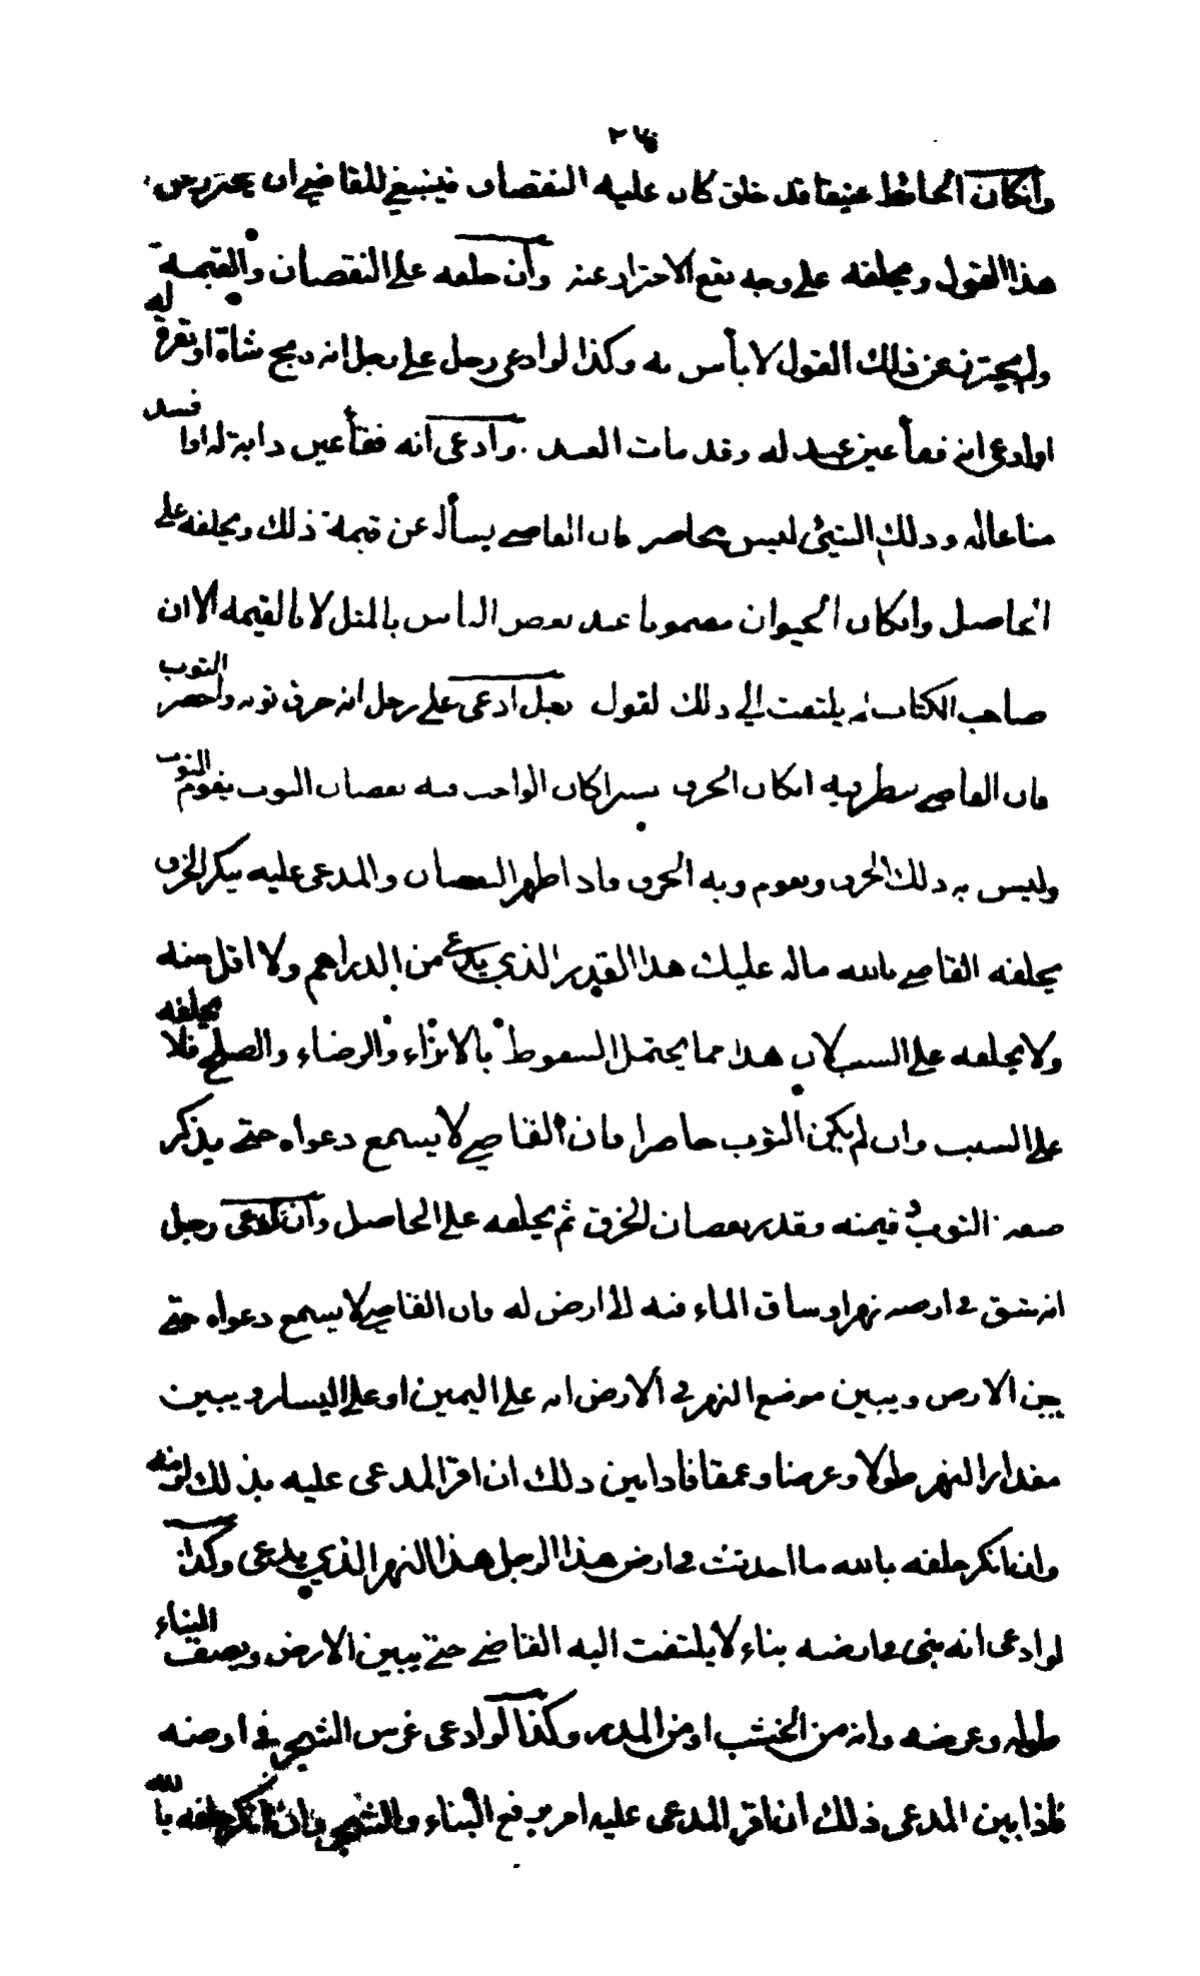 وانكان الحائط عتيقا قد خلق كان عليه النقصان فينبغي للقاضي ان يحترز عن
هذا القول ويحلفه على وجه يقع الاحتراز عنه وان حلفه على النقصان والقيمة
ولم يحترز عن ذلك القول لا بأس به وكذا لو ادعى رجل على رجل انه ذبح شاة له او بقرة
او ادعى انه فقأ عين عبد له وقد مات العبد وادعى انه فقأ عين دابة له او افسد
متاعا له وذلك الشيئ ليس بحاضر فان القاضي يسأله عن قيمة ذلك ويحلفه على
الحاصل وانكان الحيوان مضمونا عند بعض الناس بالمثل لا بالقيمة الا ان
صاحب الكتاب لم يلتفت الى ذلك القول رجل ادعى على رجل انه خرق ثوبه واحضر الثوب
فان القاضي ينظر فيه انكان الخرق يسيرا كان الواجب فيه نقصان الثوب يقوم الثوب
وليس به ذلك الخرق ويقوم وبه الخرق فاذا ظهر النقصان والمدعى عليه ينكر الخرق
يحلفه القاضي بالله ماله عليك هذا القدر الذي يدعى من الدراهم ولا اقل منه
ولا يحلفه على السبب لان هذا مما يحتمل السقوط بالابراء والرضاء والصلح فلا يحلفه
على السبب وان لم يكن الثوب حاضرا فان القاضي لا يسمع دعواه حتى يذكر
صفة الثوب وقيمته وقدر نقصان الخرق ثم يحلفه على الحاصل وان ادعى رجل
انه شق في ارضه نهرا وساق الماء فيه الى ارض له فان القاضي لا يسمع دعواه حتى
يبين الارض ويبين موضع النهر في الارض انه على اليمين او على اليسار ويبين
مقدار النهر طولا وعرضا وعمقا فاذا بين ذلك ان اقر المدعى عليه بذلك لزمه
وان انكر حلفه بالله ما احدثت في ارض هذا الرجل هذا النهر الذي يدعى وكذا
لو ادعى انه بنى في ارضه بناء لا يلتفت اليه القاضي حتى يبين الارض ويصف البناء
طوله وعرضه وانه من الخشب او من المدر وكذا لو ادعى غرس الشجر في ارضه
فاذا بين المدعى ذلك ان اقر المدعى عليه امر برفع البناء والشجر وان انكر حلفه بالله